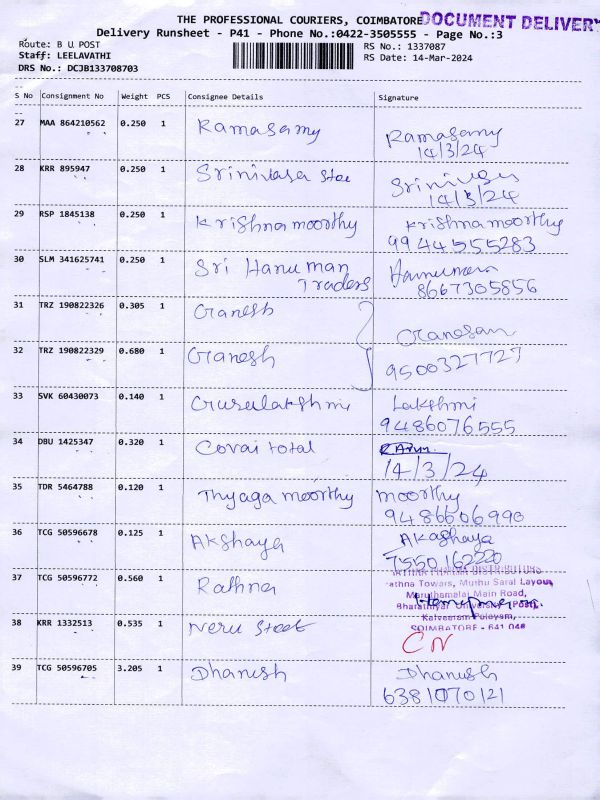 THE PROFESSIONAL COURIERS, COIMBATORE DOCUMENT DELIVERY
Delivery Runsheet - P41 - Phone No.:0422-3505555 - Page No.:3
Route: B U POST
RS No.: 1337087
Staff: LEELAVATHI
RS Date: 14-Mar-2024
DRS No.: DCJB133708703
S No Consignment No Weight PCS Consignee Details Signature
27 MAA 864210562 0.250 1 Ramasamy Ramasamy
14/3/24
28 KRR 895947 0.250 1 Srinivasa
14/3/24
29 RSP 1845138 0.250 1 Krishnamoorthy Krishnamoorthy
9944555283
30 SLM 341625741 0.250 1 Sri Hanuman
Traders
8667305856
31 TRZ 190822326 0.305 1 Ganesh
Ganesan
32 TRZ 190822329 0.680 1 Ganesh
9500327727
33 SVK 60430073 0.140 1 Gurulakshmi Lakshmi
9486076555
34 DBU 1425347 0.320 1 Covai total
14/3/24
35 TDR 5464788 0.120 1 Thyaga moorthy moorthy
9486606990
36 TCG 50596678 0.125 1 Akshaya Akashaya
7550162220
37 TCG 50596772 0.560 1 Rathna
athna Towars, Muthu Saral Layout,
Maruthamalai Main Road,
Bharathiyar University (Post),
Kalveeram Palayam,
COIMBATORE - 641 046
38 KRR 1332513 0.535 1 Neru Steet
CN
39 TCG 50596705 3.205 1 Dhanush Dhanush
6381070121